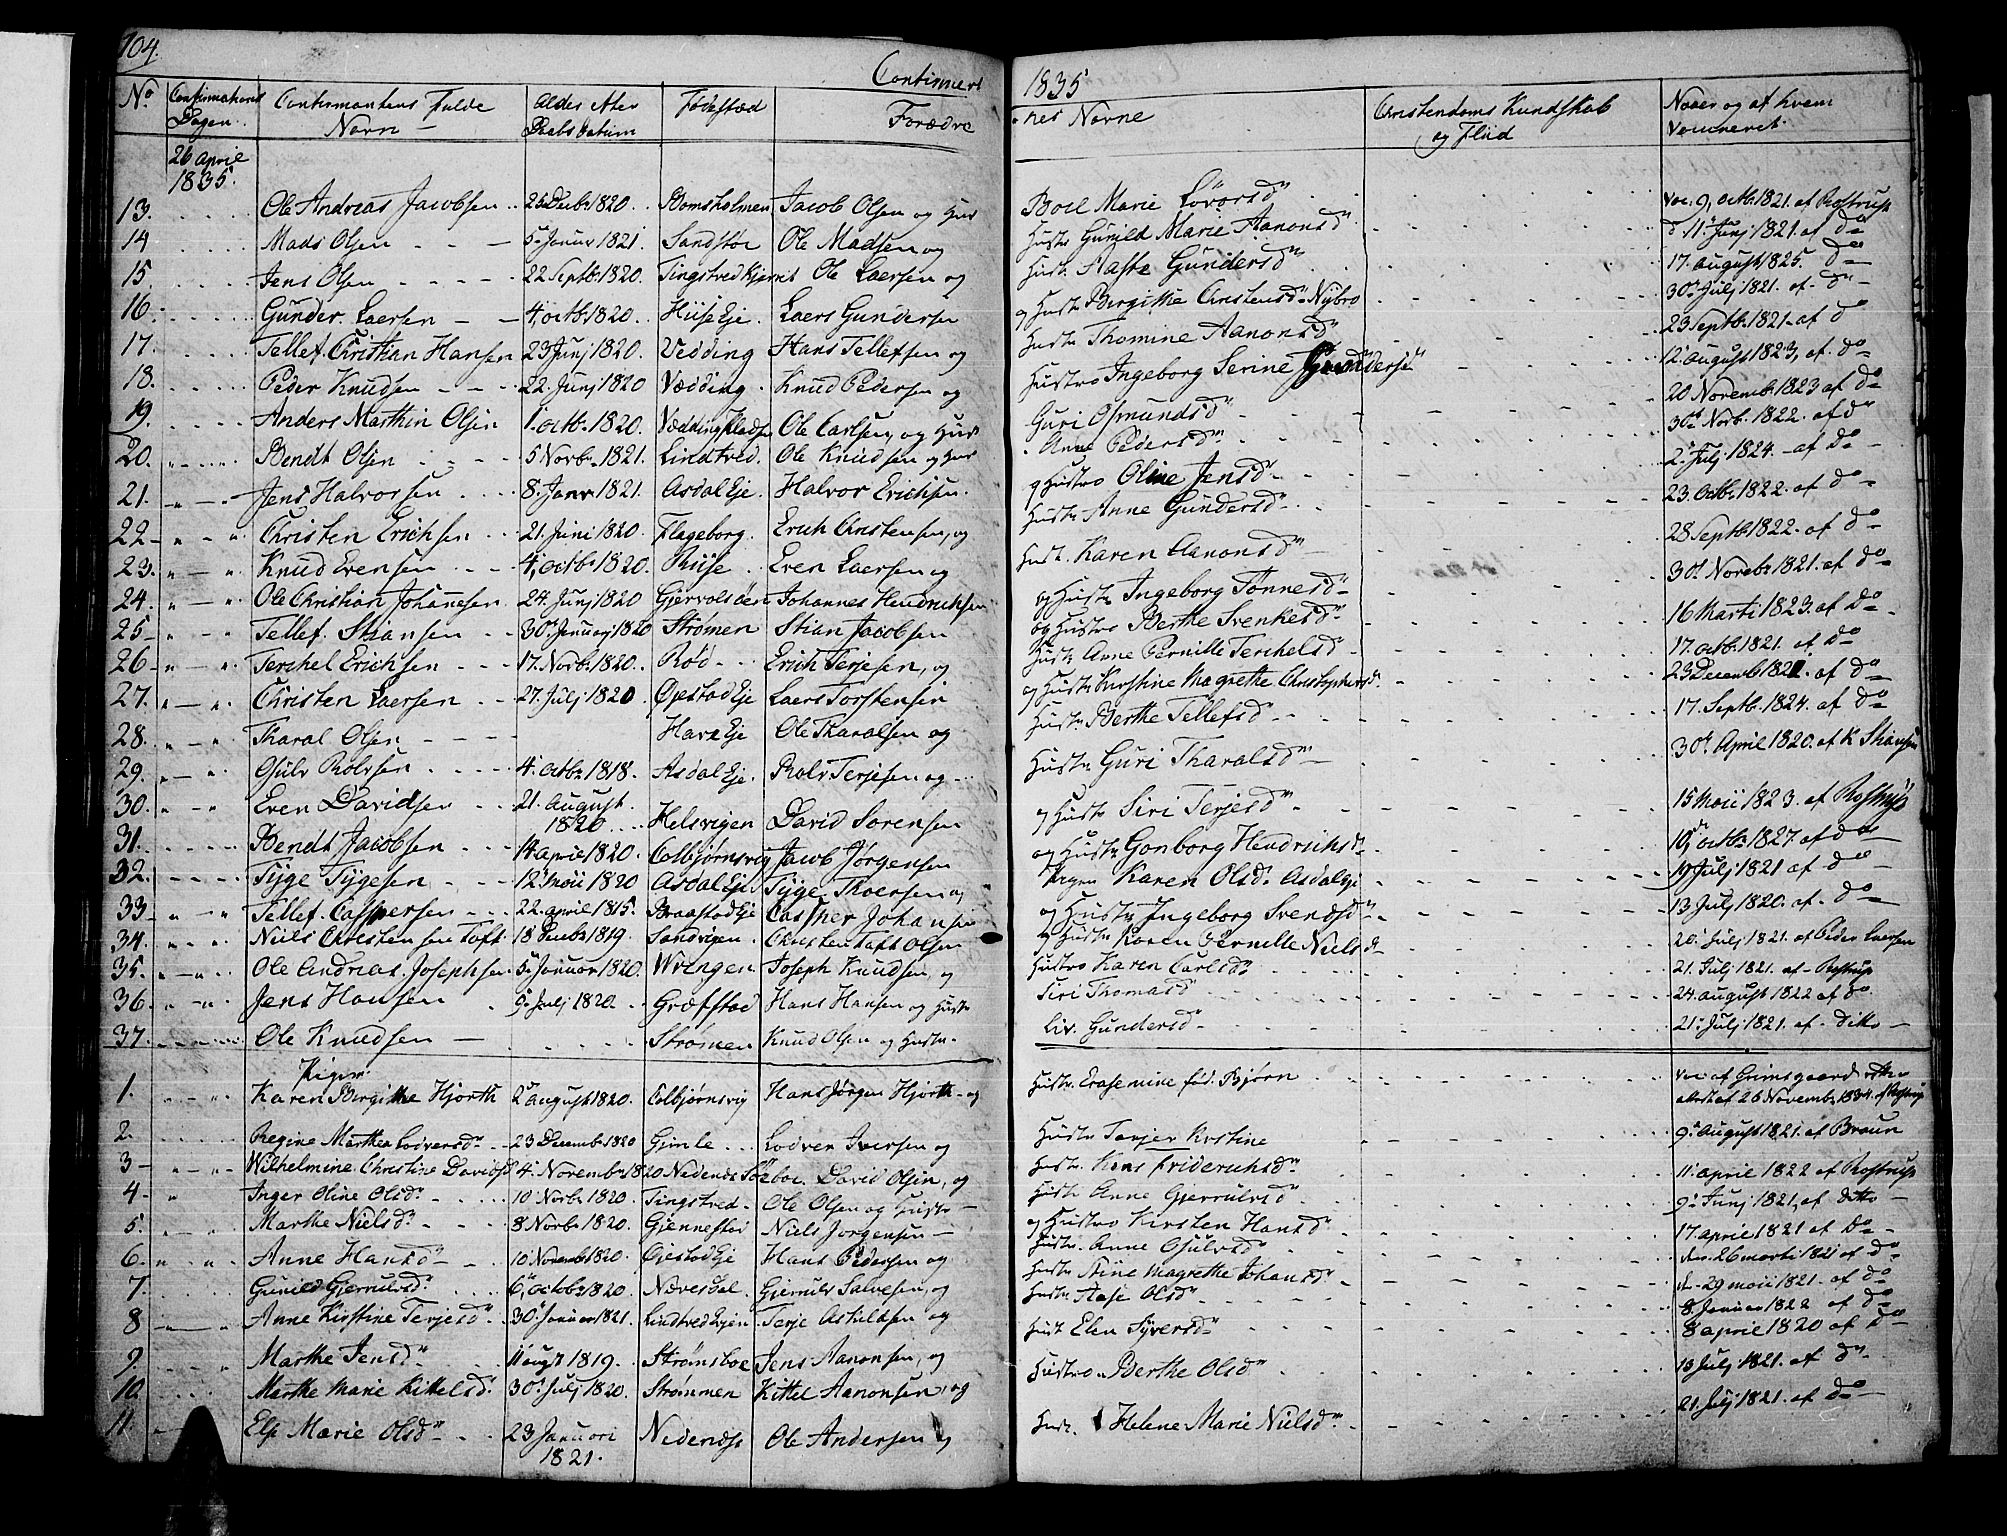 104.
Confirmert
1835
No Confirmations Dagen. Confirmantens Fulde Navn — Alder eller Daabs datum Fødested Forædre nes Navne Christendoms Kundskab og Flid Naaer og af hvem Vaccineret.
26 april 1835.
13. Ole Andreas Jacobsen 25 Decbr 1820. Bomsholmen Jacob Olsen og Hust Boel Marie Lovorsdr Vac. 9, octb. 1821. af Rostrup
14 Mads Olsen 5. Januar 1821. Sandstøe Ole Madsen og Hustr Gunild Marie Aanonsd d 11te Junj 1821. af do
15. Jens Olsen 22 Septbr 1820. Tingstvedkjerret Ole Laersen og Hust. Aaste Gundersdr 17. august 1825. do
16. Gunder Laersen 4, octbr 1820. Huse Eje. Laers Gundersen og Hust Birgitthe Christensd. Nybro 30. Julj 1821. af do
17. Tellef Christian Hansen 23 Junj 1820. Vedding Hans Tellefsen og Hust Thomine Aanonsd 23 Septb. 1821. af do
18. Peder Knudsen 22. Junj 1820 Vædding. Knud Pedersen og Hustro Ingeborg Serine Gundersd 12. august 1823, af do
19. Anders Marthin Olsen 1. octb. 1820. Vædding Pladsen Ole Carlsen, og Hust Guri Osmundsd 20 Novemb. 1823 af do
20. Bendt Olsen 5 Novbr. 1821. Lindtved. Ole Knudsen og Hust Anne Pedersdr 30. Novb. 1822. af do
21. Jens Halvorsen 8. Janr 1821. Asdal Eje. Halvor Erichsen. og Hustro Oline Jensdr 2. Julj 1824. af do
22 Christen Erichsen 21. Juni 1820 Flageborg. Erich Christensen, og Hustr Anne Gundersdr 23. Octb. 1822. af do
23. Knud Evensen 4, octbr 1820. Riise Even Laersen og Hust. Karen Aanonsdr 28 Septb 1822. af do
24. Ole Christian Johanesen 24. Junj 1820 Gjervolsøen Johannes Hendrichsen og Hustr Ingeborg Tønnesdr 30. Novebr 1821. af do
25 Tellef. Stiansen 30. Januarj 1820 Strømen Stian Jacobsen og Hustro Berthe Svenkesdr 16 Marti 1823. af do
26 Terchel Erichsen 17. Novb. 1820. Røed Erich Terjesen, og Hustr Anne Pernille Terchelsd 17. octb. 1821. af do
27. Christen Laersen 27. Julj 1820 Øjestad Eje Laers Torstensen og Hustr Kirstine Magrethe Christophersd. 23 Decemb 1821. af do
28. Tharal Olsen Have Eje Ole Tharalsen og Hustr Berthe Tellefsd 17. Septb. 1824. af do
29. Gjulv Rolvsen 4. octbr 1818. Asdal Eje. Rolv Terjesen og Hustr Guri Tharalsdr 30. April 1820. af K Stiansen
30. Even Davidsen 21. August 1820 Helsvigen David Sørensen og Hustr Siri Terjesd 15 Maii 1823. af Rostrup
31. Bendt Jacobsen 14 april 1820. Colbjørnsvig Jacob Jørgensen og Hustr Gonborg Hendrichsdr 10, octbr 1827. af do
32. Tyge Tygesen 12 Maii 1820 Asdal Eje Tyge Thoersen og Pigen Karen Olsd. Asdal Eje 19 Julj 1821 af do
33 Tellef. Caspersen 22. april 1815. Braastad Eje Casper Johansen og Hustr Ingeborg Svendsdr 13 Julj 1820. af do
34. Niels Christensen Toft 18 Decbr 1819. Sandvigen. Christen Toft Olsen og Hustr Karen Pernille Nielsd 20. Julj 1821. af Peder Laersen
35. Ole Andreas Josephsen 5. Januar 1820. Wrængen Joseph Knudsen, og Hustro Karen Carlsdr 21. Julj 1821. af Rostrup
36. Jens Hansen 9. Julj 1820. Græfstad Hans Hansen og Hustr Siri Thomasd 24. august 1822 af do.
37. Ole Knudsen Strømen Knud Olsen og Hustr. Liv. Gundersd 21. Julj 1821. af ditto
Piger.
1. Karen Birgitthe Hjorth 2 august 1820. Colbjørnsvig Hans Jørgen Hjorth og Hustr. Erasemine fød. Bjørn Vac af Grimsgaard attest af 26 Novembr. 1834. af Rostrup
2. Regine Marthea Lodversdr 23 Decembr 1820 Gimle Lodver Iversen og Hustr Torjer Kirstine 9. august 1821. af Braun
3 Wilhelmine Christine Davidsd 4. Novembr 1820 Nedenes Saeboe. David Olsen, og Hustr. Karen Friderichsdr 11. april 1822 af Rostrup
4. Inger Oline Olsdr 10. Novbr 1820. Tingstved Ole Olsen og Hustr Anne Gjerrulvsd 9. Junj 1821, af ditto
5. Marthe Nielsdr 8 Novbr 1820. Gjennestad Niels Jørgensen og Hustro Kirsten Hansd 17. april 1821 af do
6. Anne Hansdr 10 Novemb 1820. Øjestad Eje Hans Pedersen og Hustr. Anne Gjulvsdr den. 26 marti 1821 af do
7. Gunild Gjerrulvsdr 6, october 1820. Næresdal. Gjerrulv Salvesen, og Hustr Stine Magrethe Johansd d. 29 maii 1821. af do
8 Anne Kirstine Terjesdr 30. Januar 1821. Lindtved Ejen. Terje Askildsen og Hustr Aase Olsdr 8. Januar 1822 af do
9. Marthe Jensdr 11 augst 1819. Strømsboe Jens Aanonsen, og Hust Elen Syversdr 8 april 1820 af do
10. Marthe Marie Kittelsdr 30. Julj 1820. Strømmen Kittel Aanonsen, og Hustro Berthe Olsdr 10 Julj 1821. af do
11. Else Marie Olsdr 23 Januari 1821. Nedenæs Ole Andersen og Hust. Helene Marie Nielsdr 21. Julj 1821. af do